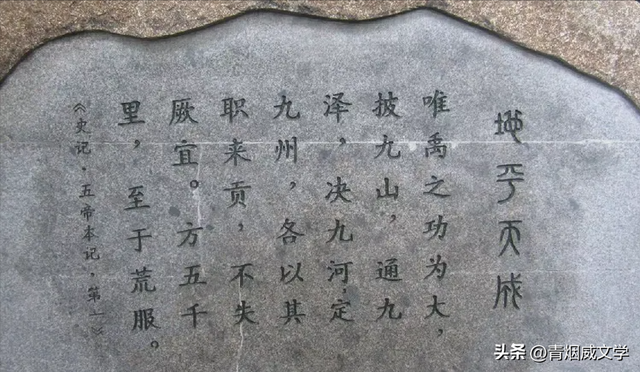 地平天成
唯禹之功为大，
披九山，通九
泽，决九河，定
九州，各以其
职来贡，不失
厥宜。方五千
里，至于荒服。
《史记·五帝本记·第一》
头条 @青烟威文学